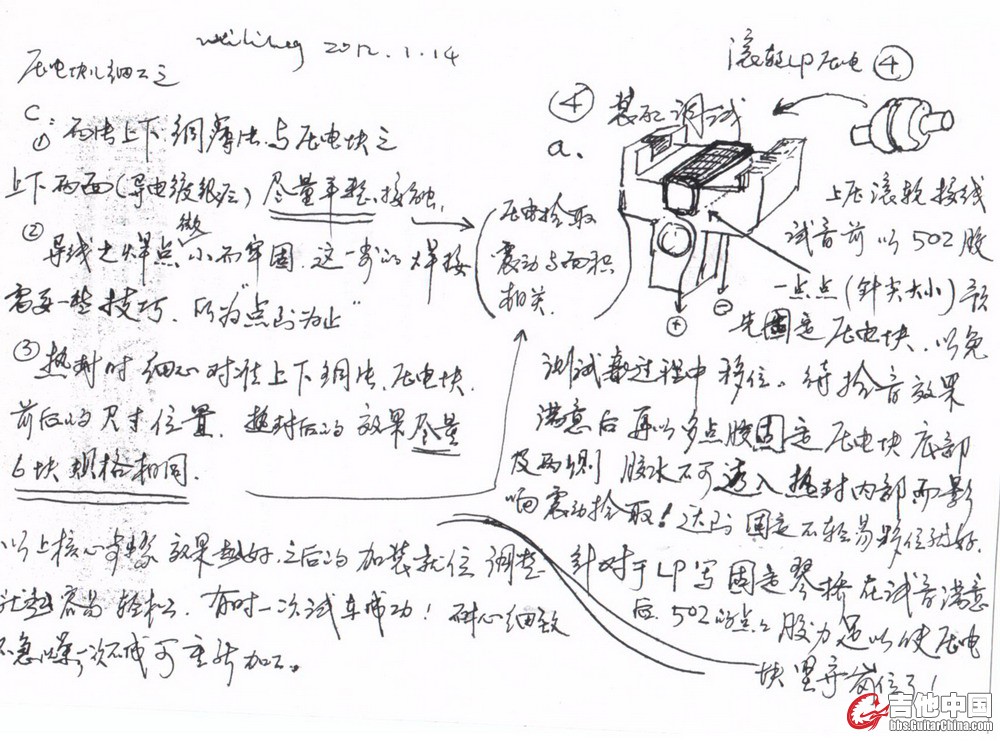 2012.1.14
压电块细工之
C:
① 两片上下铜薄片与压电块之
上下两面(导电镀银层)尽量平整接触.
② 导线之焊点微小而牢固.这一步的焊接
需要一些技巧.所为"点到为止"
③ 热封时细心对准上下铜片、压电块
前后的尺寸位置.热封后的效果尽量
6块规格相同.
以上核心步骤效果越好.之后的加装就位调整
就越容易轻松.有时一次试车成功!耐心细致
不急躁,一次不成可重新加工。
压电拾取
震动与面积
相关.
滚轮LP压电④
④ 装配调试
a.
⊕ ⊖
上压滚轮接线
试音前以502胶
一点点(针尖大小)预
先固定压电块.以免
测试过程中移位。待拾音效果
满意后再以多点胶固定压电块底部
及两侧 胶水不可透入热封内部而影
响震动拾取!达到固定不轻易移位就好.
针对于LP写固定琴桥在试音满意
后.502的点点胶力足以使压电
块坚守岗位了!
吉他中国
bbs.GuitarChina.com